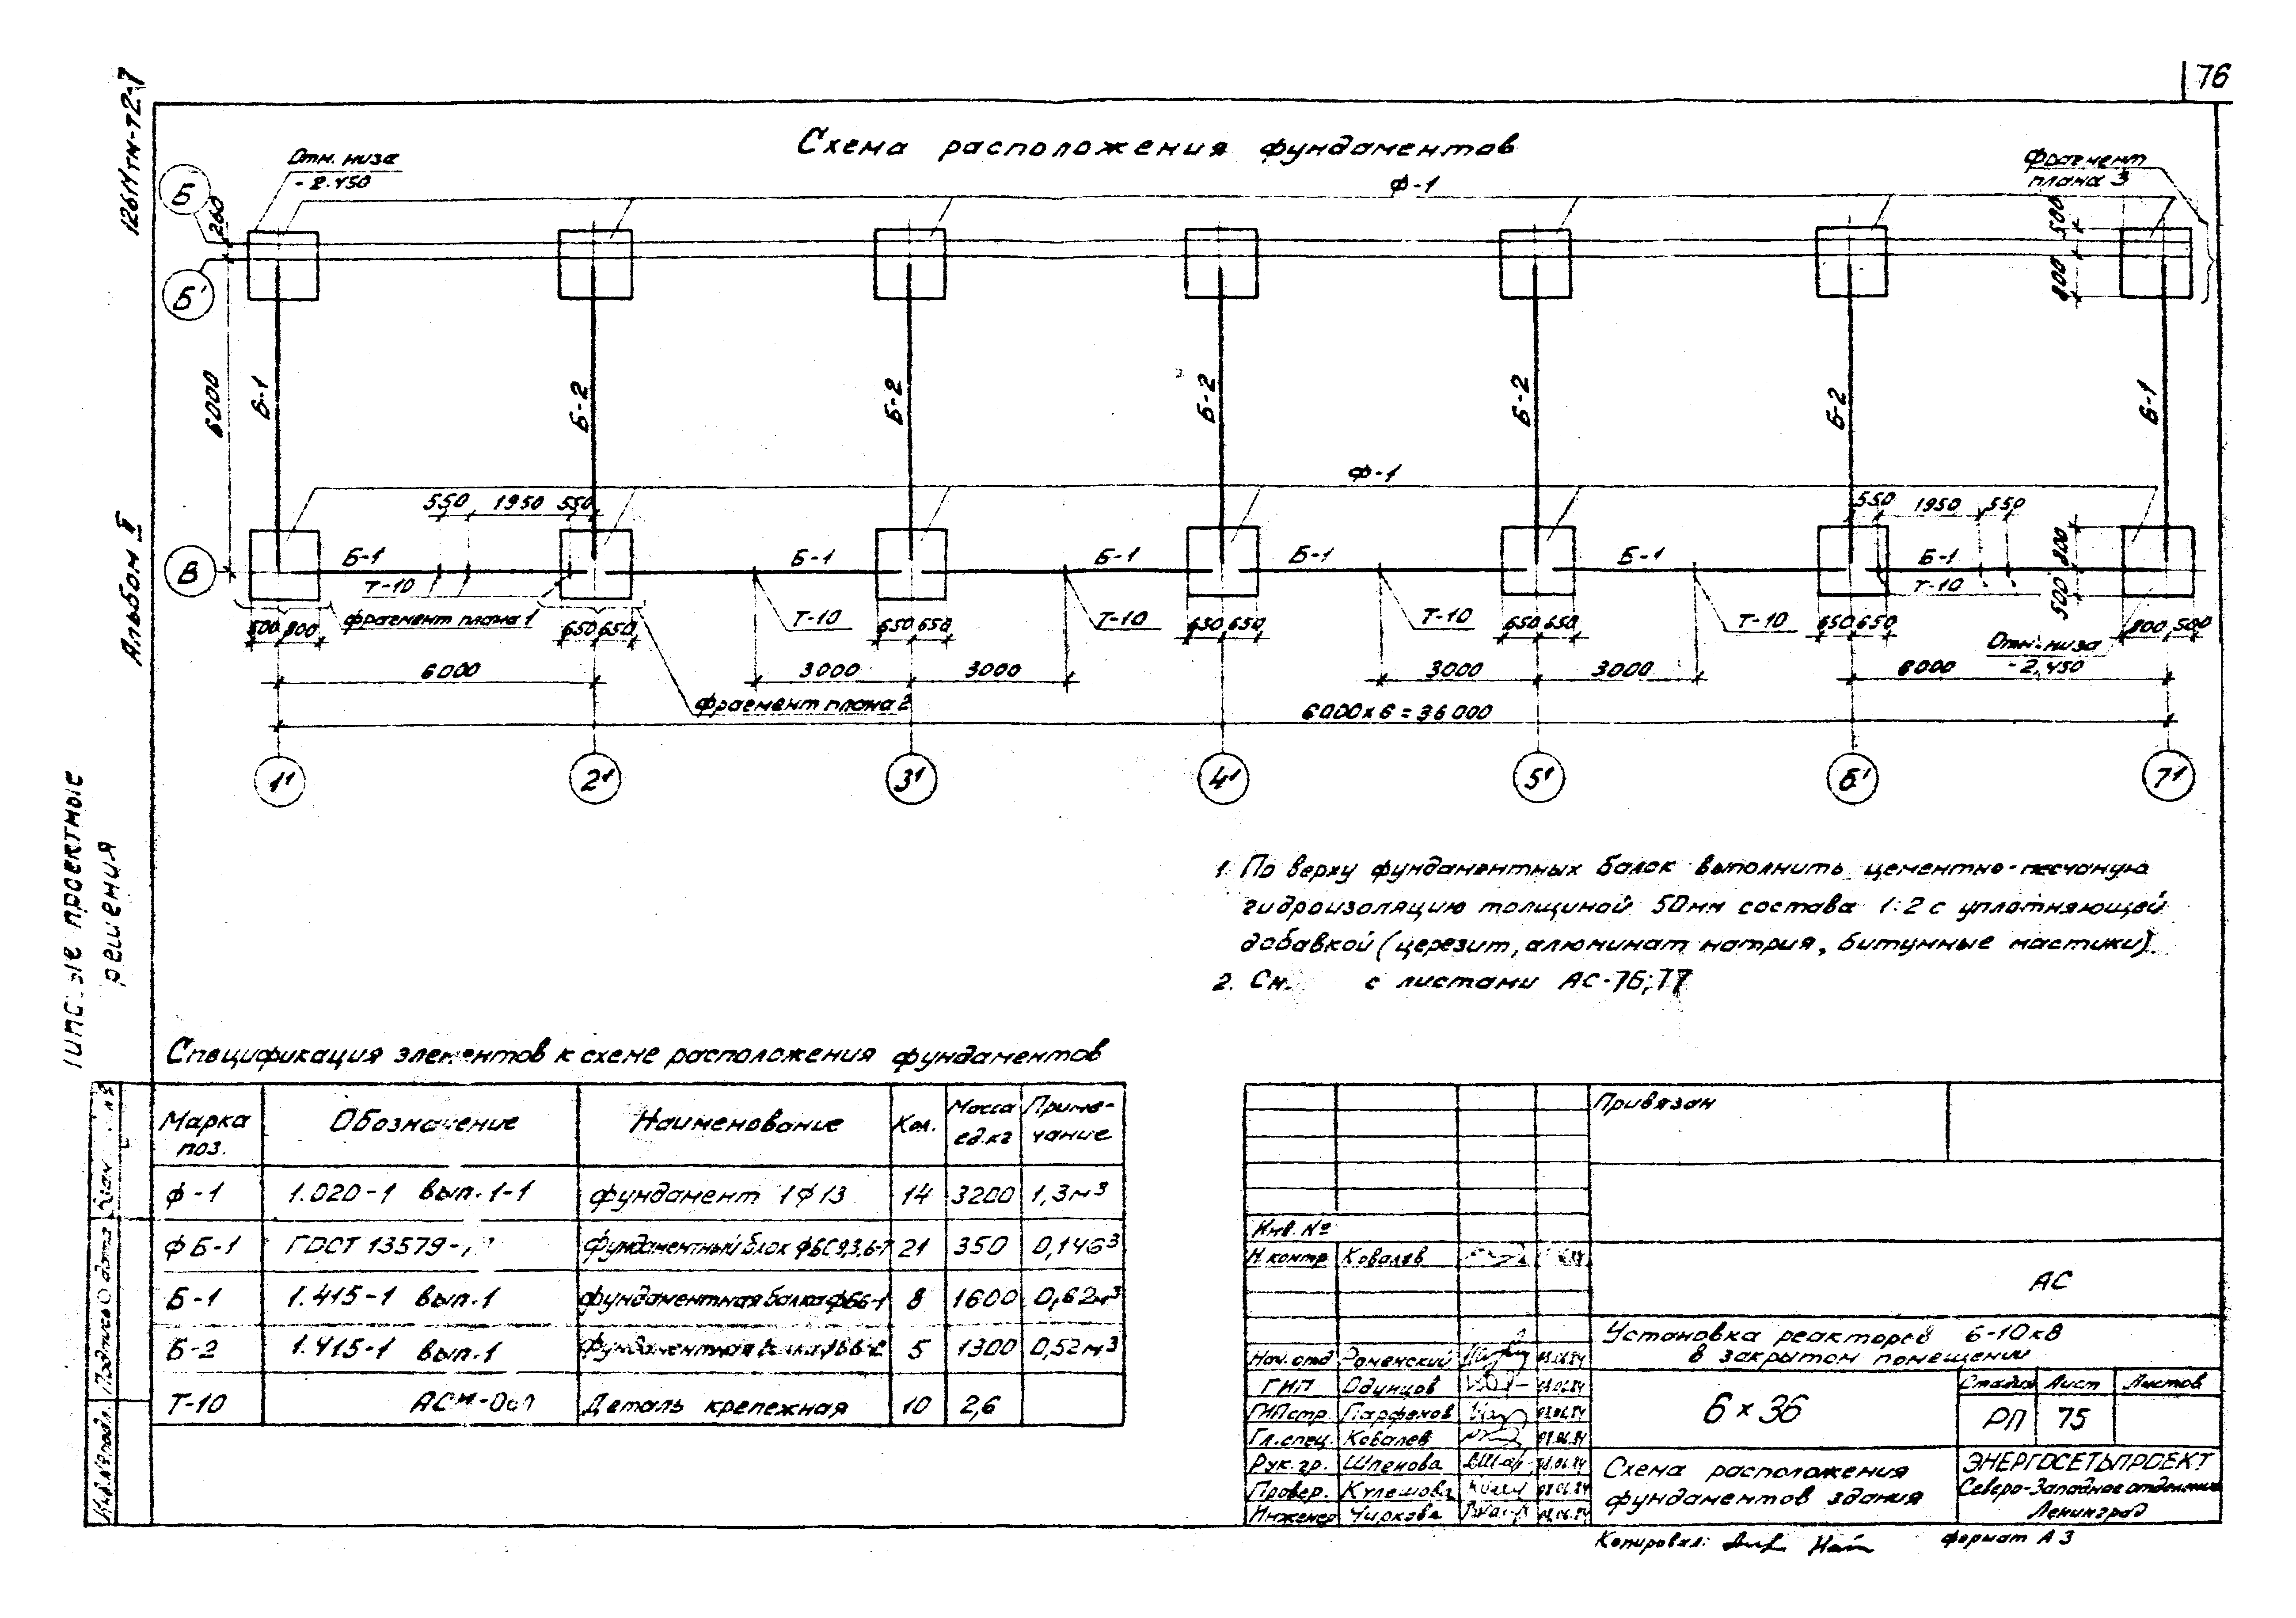 76
126И тм-т2-7
Альбом V
Типовые проектные
решения
Схема расположения фундаментов
Отм. низа
-2.450
Ф-1
фрагмент
плана 3
Б
260
Б'
500
800
6000
Б-1
Б-2
Б-2
Б-2
Б-2
Б-2
Б-1
Ф-1
550 1950 550
550 1950 550
В
Б-1
Б-1
Б-1
Б-1
Б-1
Б-1
800
500
Т-10
Т-10
Т-10
Т-10
Т-10
Т-10
500 800
фрагмент плана 1
650 650
650 650
650 650
650 650
650 650
800 500
Отм. низа
-2,450
6000
3000
3000
3000
3000
6000
фрагмент плана 2
6000х6=36000
1'
2'
3'
4'
5'
6'
7'
1. По верху фундаментных балок выполнить цементно-песчаную
гидроизоляцию толщиной 50мм состава 1:2 с уплотняющей
добавкой (церезит, алюминат натрия, битумные мастики).
2. См. с листами АС-76;77
Спецификация элементов к схеме расположения фундаментов
Марка поз. Обозначение Наименование Кол. Масса ед.кг Примечание
Ф-1 1.020-1 вып.1-1 фундамент 1Ф13 14 3200 1,3м³
ФБ-1 ГОСТ 13579- фундаментный блок ФБС9.3.6-Т 21 350 0,146³
Б-1 1.415-1 вып.1 фундаментная балка ФБ6-1 8 1600 0,62м³
Б-2 1.415-1 вып.1 фундаментная балка ФБ6-2 5 1300 0,52м³
Т-10 Деталь крепежная 10 2,6
Привязан
Инв. №
Н.контр Ковалев
АС
Установка реакторов 6-10кВ
в закрытом помещении
Нач.отд Роменский
ГИП Одинцов
ГИПстр. Парфенов
Гл.спец. Ковалев 08.06.84
Рук.гр. Шленова
Провер. Кулешова 08.06.84
Инженер Чиркова 08.06.84
6 х 36
Стадия Лист Листов
РП 75
Схема расположения
фундаментов здания
ЭНЕРГОСЕТЬПРОЕКТ
Северо-Западное отделение
Ленинград
Копировал:
формат А3
Инв.№подл. Подпись и дата